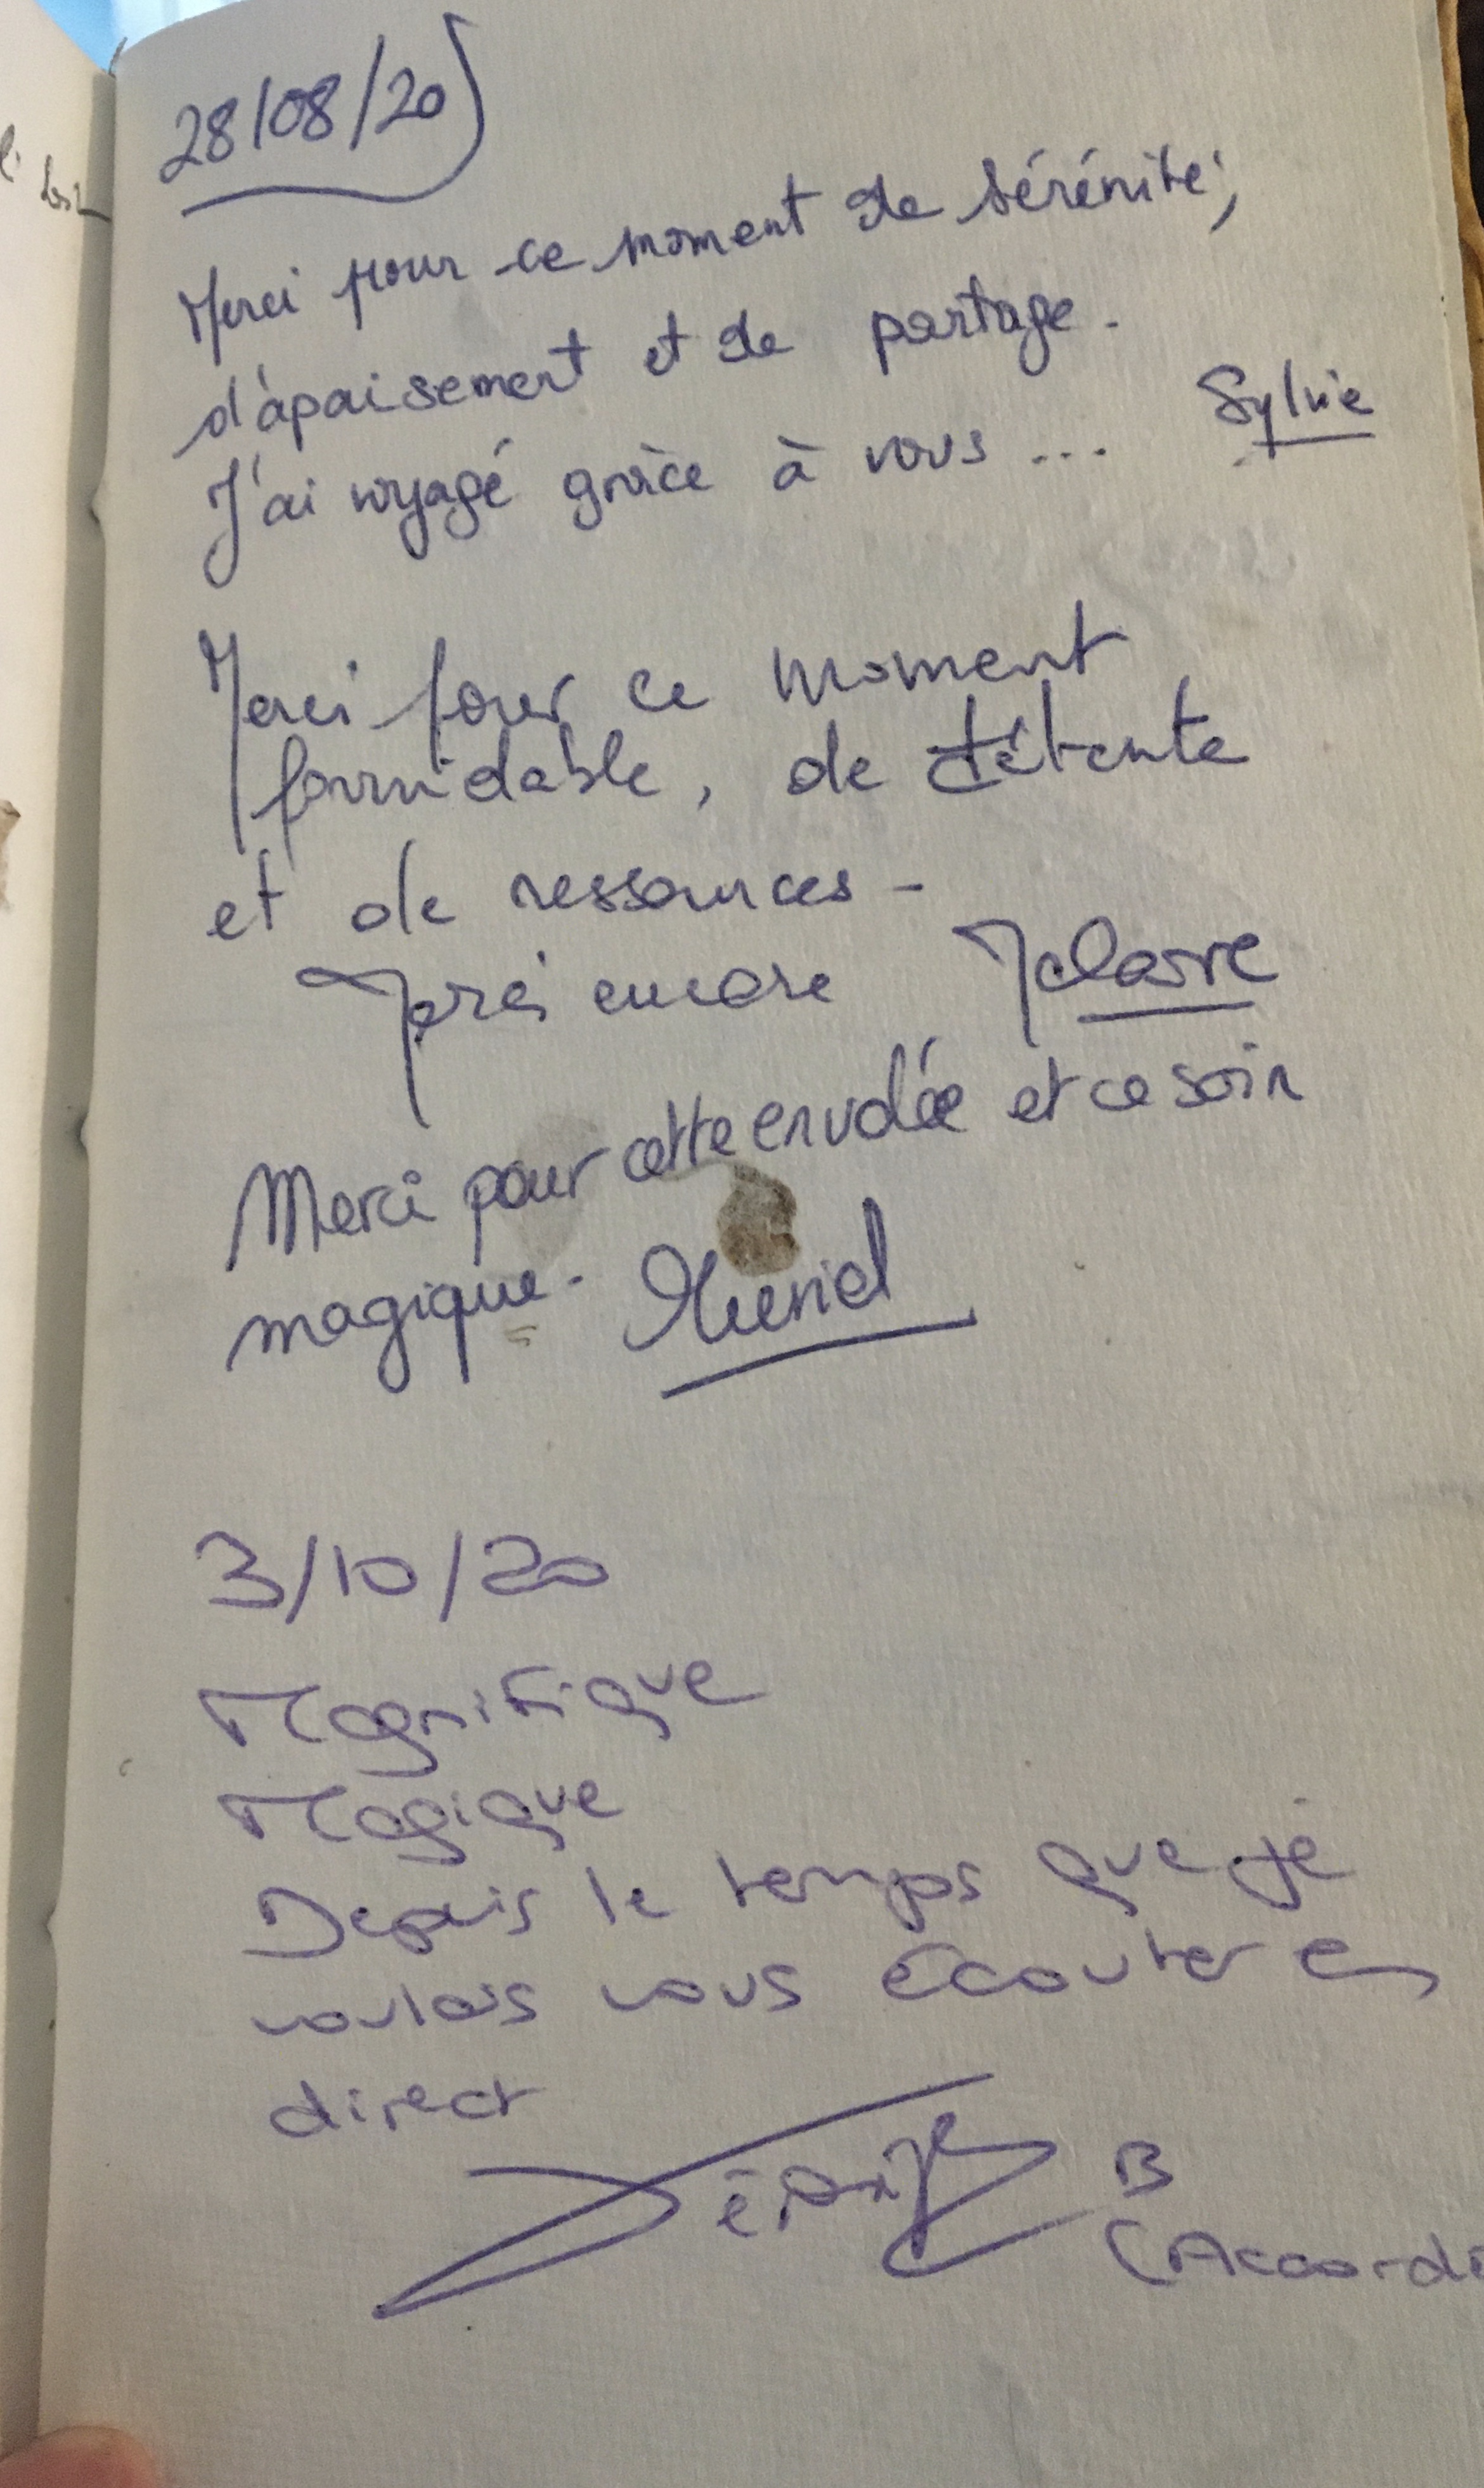 28/08/20
Merci pour ce moment de sérénité,
d'apaisement et de partage.
J'ai voyagé grâce à vous ... Sylvie
Merci pour ce moment
formidable, de détente
et de ressources -
Merci encore
Merci pour cette envolée et ce soin
magique. Muriel
3/10/20
Magnifique
Magique
Depuis le temps que je
voulais vous écouter en
direct
B
(Accordé